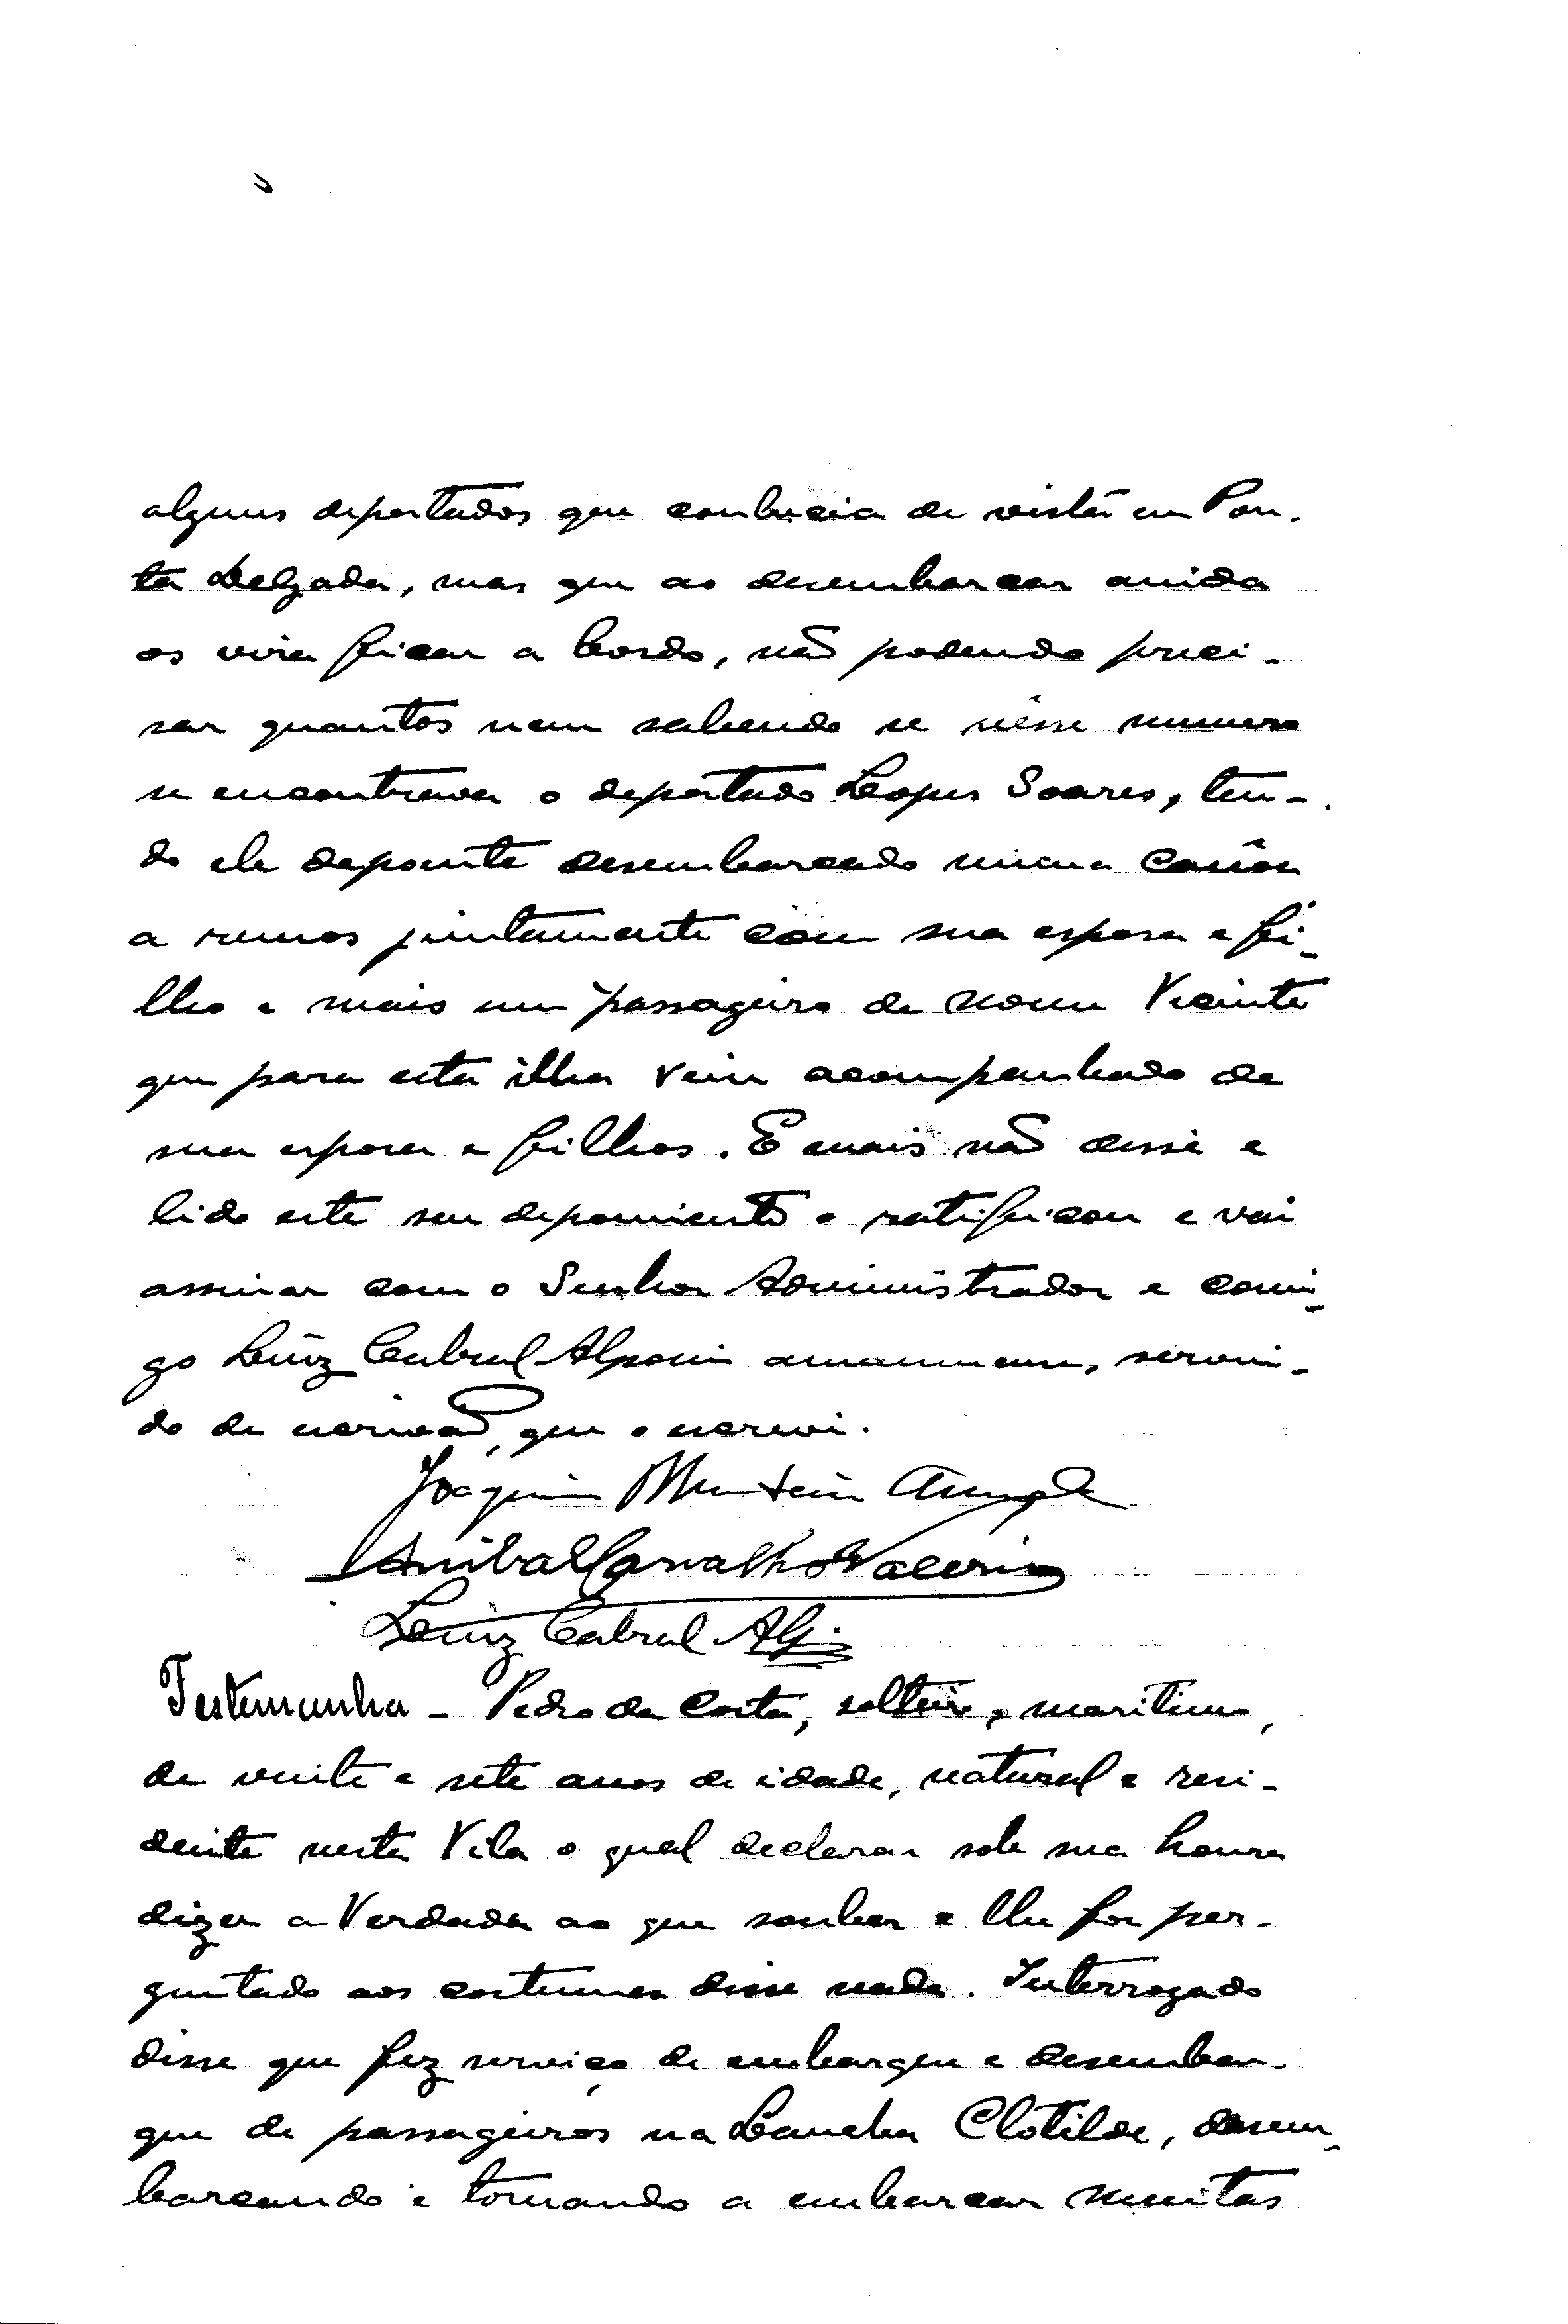 alguns deportados que conhecia de vista em Pon-
ta Delgada, mas que ao desembarcar ainda
os vira ficar a bordo, não podendo preci-
sar quantos nem sabendo se nêsse numero
se encontrava o deportado Lopes Soares, ten-
do ele depoente desembarcado numa canôa
a remos juntamente com sua esposa e fi-
lho e mais um passageiro de nome Vicente
que para esta ilha veiu acompanhado de
sua esposa e filhos. E mais não disse e
lido este seu depoimento o ratificou e vai
assinar com o Senhor Administrador e comi-
go Luiz Cabral Alpoim amanuense, servin-
do de escrivão, que o escrevi.
Joaquim Monteiro
Anibal Carvalho Valerio
Luiz Cabral Alpoim
Testemunha - Pedro da Costa, solteiro, maritimo,
de vinte e sete anos de idade, natural e resi-
dente nesta Vila o qual declarou sob sua honra
dizer a Verdade ao que souber e lhe for per-
guntado aos costumes disse nada. Interrogado
disse que fez serviço de embarque e desembar-
que de passageiros na Lancha Clotilde, desem-
barcando e tornando a embarcar muitas